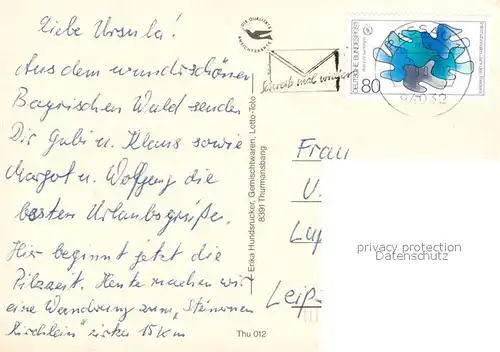 Liebe Ursula!
Aus dem wunderschönen
Bayrischen Wald senden
Dir Gabi u. Klaus sowie
Margot u. Wolfgang die
besten Urlaubsgrüße.
Hier beginnt jetzt die
Pilzzeit. Heute machen wir
eine Wanderung zum "Steinernen
Kirchlein" zirka 15 Km
DIE QUALITÄTS
Erika Hundsrucker, Gemischtwaren, Lotto-Toto
8391 Thurmansbang
Thu 012
Schreib mal wieder
DEUTSCHE BUNDESPOST
80
Frau
U.
Leipzi
privacy protection
Datenschutz